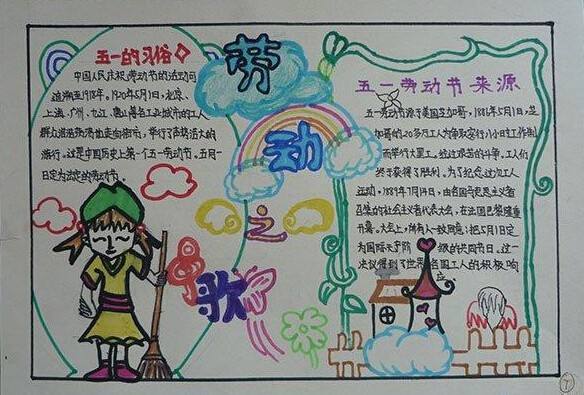 五一的习俗
中国人民庆祝劳动节的活动可
追溯至1918年。1920年5月1日，北京、
上海、广州、九江、唐山等各工业城市的工人
群众浩浩荡荡地走向街市、举行了声势浩大的
游行，这是中国历史上第一个五一劳动节。五月一
日定为法定的劳动节。
劳
动
之
歌
五一劳动节来源
五一劳动节源于美国芝加哥，1886年5月1日，芝
加哥的20多万工人为争取实行八小时工作制
而举行大罢工，经过艰苦的斗争，工人们
终于获得了胜利。为了纪念这次工人
运动，1889年7月14日，由各国马克思主义者
召集的社会主义者代表大会，在法国巴黎隆重
开幕。大会上，所有人一致同意：把5月1日定
为国际无产阶级的共同节日。这一
决议得到了世界各国工人的积极响
应
7